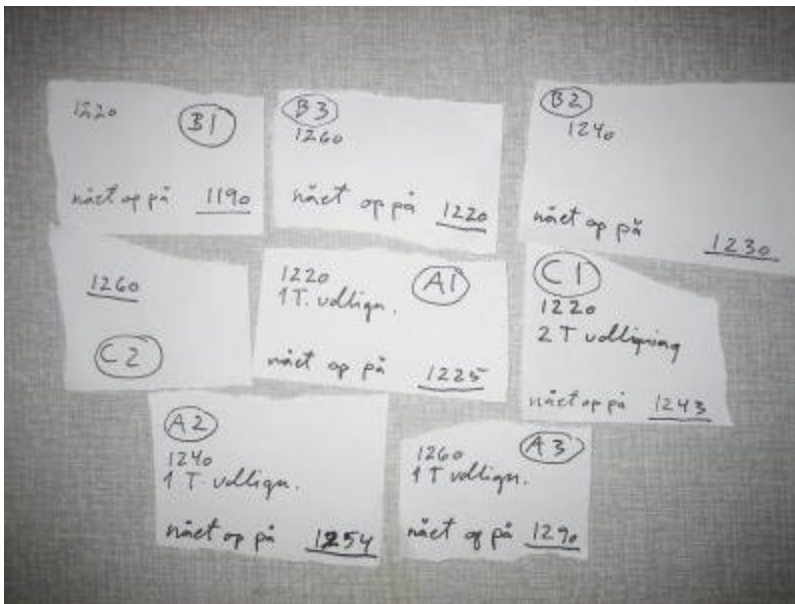 1220
B1
nået op på 1190
B3
1260
nået op på 1220
B2
1240
nået op på 1230
1260
C2
1220
A1
1 T. udlign.
nået op på 1225
C1
1220
2 T udligning
nået op på 1243
A2
1240
1 T udlign.
nået op på 1254
1260
A3
1 T udlign.
nået op på 1290